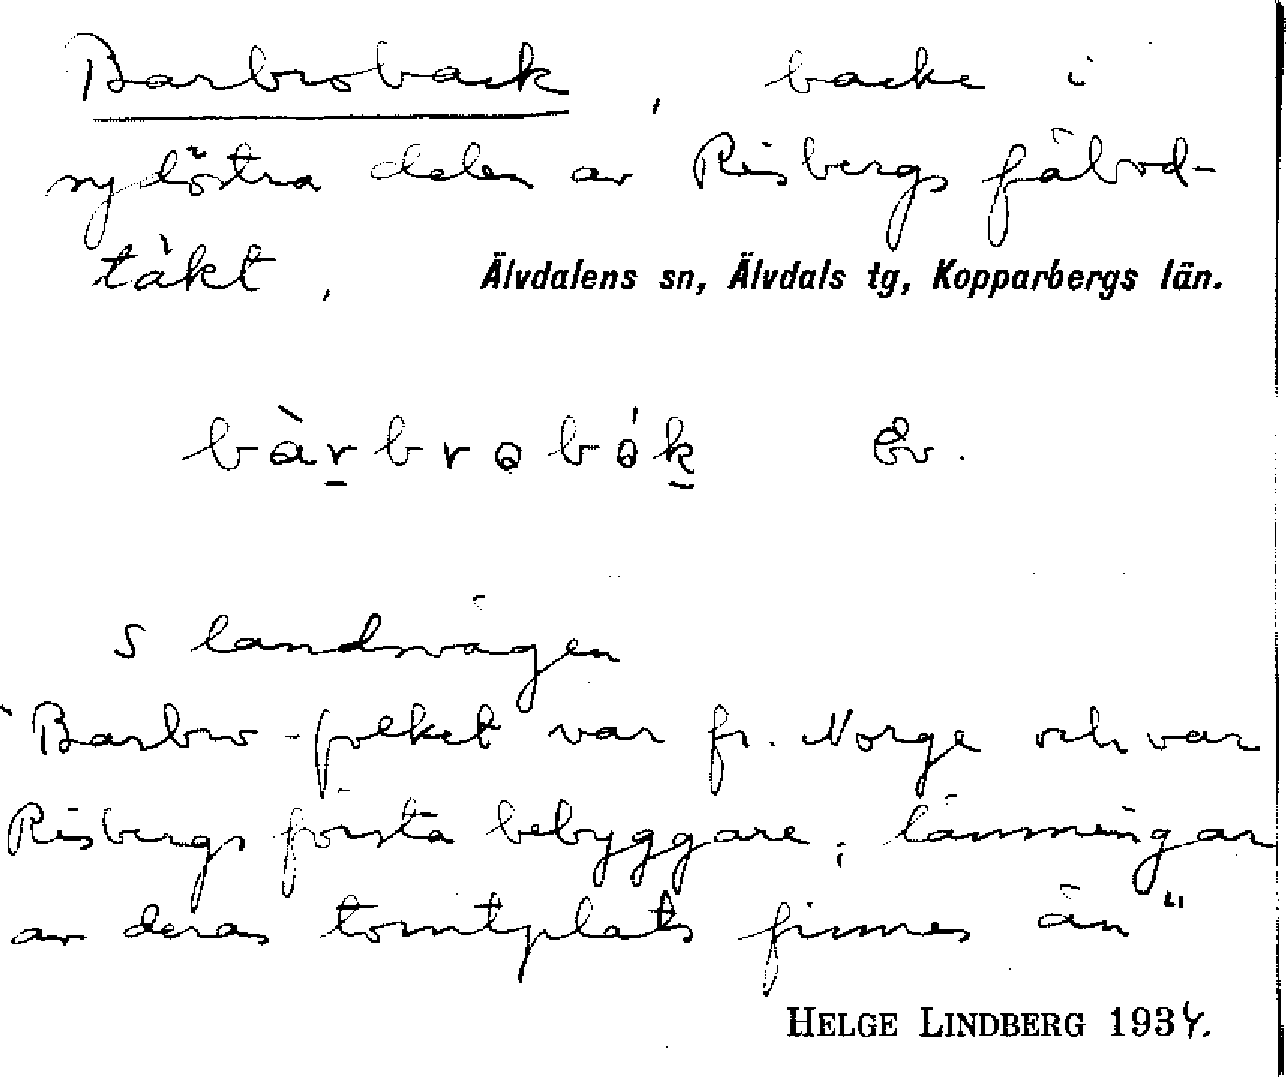 Barbroback, backe i
sydöstra delen av Risbergs fäbod-
täkt. Älvdalens sn, Älvdals tg, Kopparbergs län.
bàr̠brobók̠ Ev.
S landsvägen
"Barbro-folket var fr. Norge och var
Risbergs första bebyggare; lämningar
av deras tomtplats finnes än"
HELGE LINDBERG 1934.